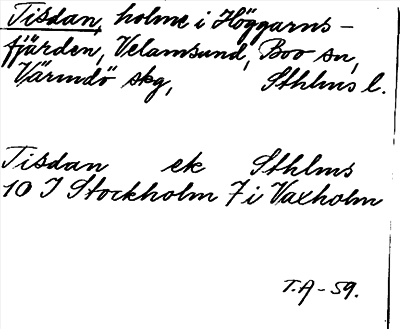 Tisdan, holme i Höggarns-
fjärden, Velamsund, Boo sn,
Värmdö skg, Sthlms l.
Tisdan ek Sthlms
10 I Stockholm 7 i Vaxholm
T.A - 59.